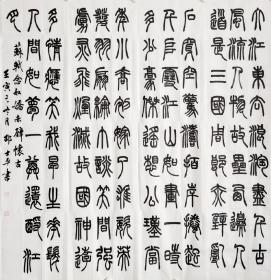 大江東去浪淘盡千古
風流人物故壘西邊人
道是三國周郎赤壁亂
石穿空驚濤拍岸捲起
千堆雪江山如畫一時
多少豪傑遙想公瑾當
年小喬初嫁了雄姿英
發羽扇綸巾談笑間檣
櫓灰飛煙滅故國神遊
多情應笑我早生華髮
人間如夢一尊還酹江
月
蘇軾念奴嬌赤壁懷古
壬寅之六月